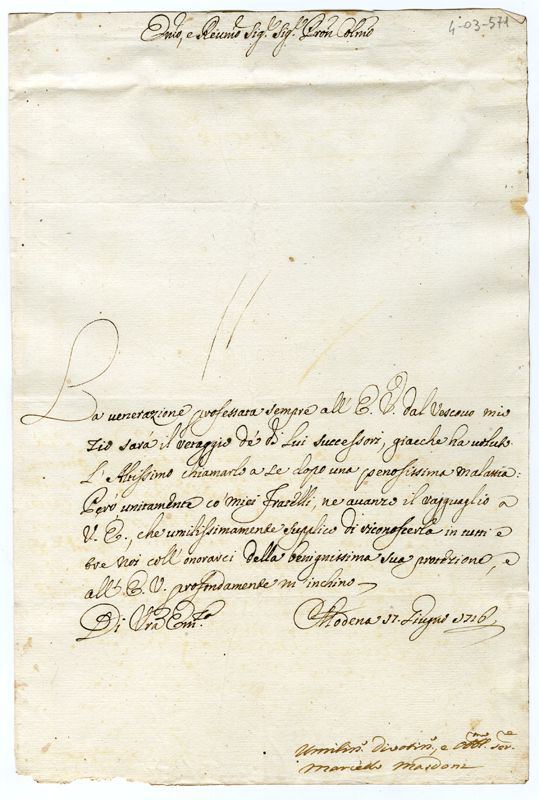 4-03-571
Emo, e Reumo Sig.r Sig.r Pron Colmo
La venerazione professata sempre all E. V. dal Vescovo mio
Zio sarà il retaggio de di Lui successori, giacche ha voluto
L'Altissimo chiamarlo a se dopo una penosissima malattia:
Però unitamente co miei Fratelli, ne avanzo il ragguaglio a
V. E., che umilissimamente supplico di riconoscerla in tutti e
tre noi coll'onorarci della benignissima sua protezione, e
all' E. V. profondamente m'inchino
Di Vra Em.za Modena 17 Giugno 1716
Umiliss.o Divotiss.o, e Obbl.mo Ser.e
Marcello Masdoni